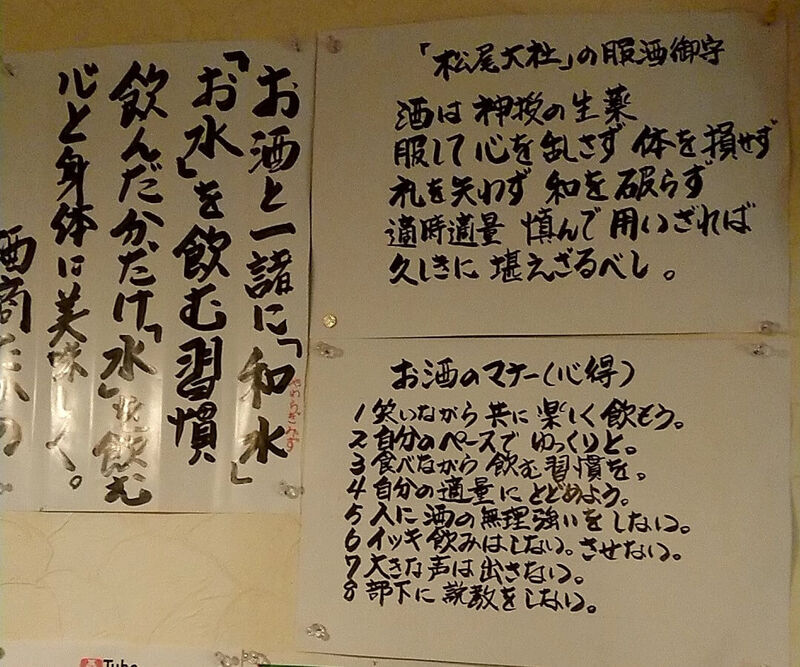 お酒と一諸に「和水」
やわらぎみず
「お水」を飲む習慣
飲んだ分だけ「水」も飲む
心と身体に美味しく。
酒商たかの
「松尾大社」の服酒御守
酒は 神授の生薬
服して心を乱さず 体を損せず
礼を失わず 和を破らず
適時適量 慎んで 用いざれば
久しきに 堪えざるべし。
お酒のマナー(心得)
1 笑いながら 共に 楽しく 飲もう。
2 自分のペースで ゆっくりと。
3 食べながら 飲む 習慣を。
4 自分の適量に とどめよう。
5 人に 酒の無理強いを しない。
6 イッキ飲みはしない。させない。
7 大きな声は 出さない。
8 部下に 説教をしない。
Tube